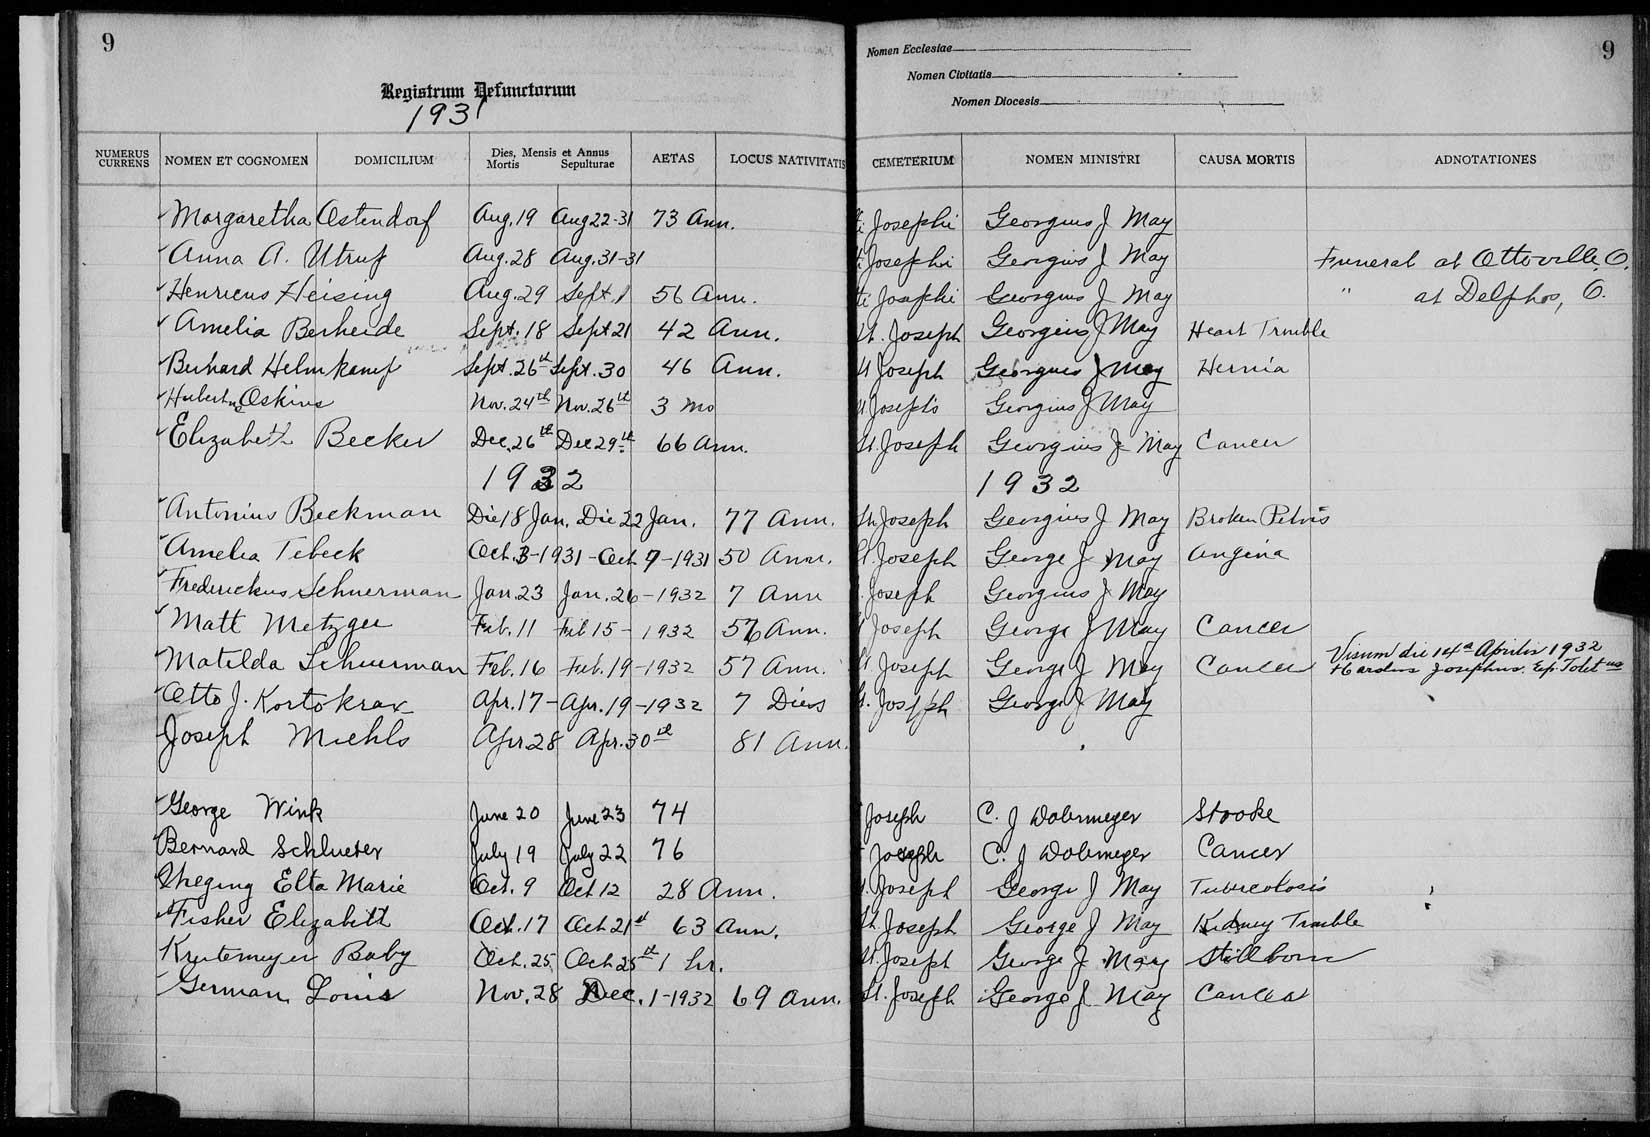 9
Registrum Defunctorum
1931
Nomen Ecclesiae
Nomen Civitatis
Nomen Diocesis
9
NUMERUS CURRENS NOMEN ET COGNOMEN DOMICILIUM Dies, Mensis et Annus Mortis Sepulturae AETAS LOCUS NATIVITATIS CEMETERIUM NOMEN MINISTRI CAUSA MORTIS ADNOTATIONES
Margaretha Ostendorf Aug. 19 Aug 22-31 73 Ann. Josephi Georgius J May
Anna A. Utrup Aug. 28 Aug. 31-31 Josephi Georgius J May Funeral at Ottoville, O.
Henricus Heising Aug. 29 Sept. 1 56 Ann. Josephi Georgius J May " at Delphos, O.
Amelia Berheide Sept. 18 Sept 21 42 Ann. St. Joseph Georgius J May Heart Trouble
Bernard Helmkamp Sept. 26th Sept. 30 46 Ann. St Joseph Georgius J May Hernia
Hubertus Oskins Nov. 24th Nov. 26th 3 mo St Joseph's Georgius J May
Elizabeth Becker Dec. 26th Dec 29th 66 Ann. St. Joseph Georgius J May Cancer
1932 1932
Antonius Beckman Die 18 Jan. Die 22 Jan. 77 Ann. St. Joseph Georgius J May Broken Pelvis
Amelia Tebeck Oct. 3-1931 - Oct 7-1931 50 Ann. St. Joseph George J May Angina
Frederickus Schuerman Jan. 23 Jan. 26-1932 7 Ann Joseph Georgius J May
Matt Metzger Feb. 11 Feb 15-1932 56 Ann. Joseph George J May Cancer
Matilda Schuerman Feb. 16 Feb. 19-1932 57 Ann. St Joseph George J May Cancer Visum die 14a Aprilis 1932
Carolus Josephus. Ep. Toletus
Otto J. Kortokrax Apr. 17 - Apr. 19-1932 7 Dies St. Joseph George J May
Joseph Miehls Apr. 28 Apr. 30th 81 Ann.
George Wink June 20 June 23 74 Joseph C. J Dobmeyer Stroke
Bernard Schlueter July 19 July 22 76 Joseph C. J Dobmeyer Cancer
Elta Marie Oct. 9 Oct 12 28 Ann. St. Joseph George J May Tuberculosis
Fisher Elizabeth Oct. 17 Oct 21st 63 Ann. St. Joseph George J May Kidney Trouble
Krutemeyer Baby Oct. 25 Oct 25th 1 hr. St. Joseph George J May Stillborn
German Louis Nov. 28 Dec. 1-1932 69 Ann. St. Joseph George J May Cancer